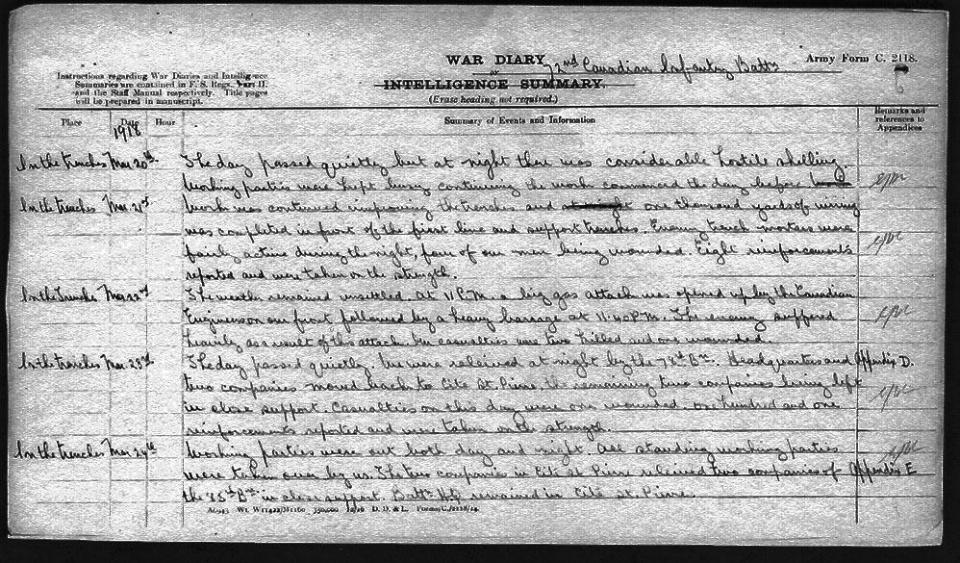 WAR DIARY 72nd Canadian Infantry Battn
Army Form C. 2118.
or
INTELLIGENCE SUMMARY.
(Erase heading not required.)
Instructions regarding War Diaries and Intelligence
Summaries are contained in F. S. Regs., Part II.
and the Staff Manual respectively. Title pages
will be prepared in manuscript.
Place Date Hour Summary of Events and Information Remarks and references to Appendices
1918
In the trenches Mar 20th. The day passed quietly but at night there was considerable hostile shelling.
Working parties were kept busy continuing the work commenced the day before
In the trenches Mar 21st Work was continued improving the trenches and one thousand yards of wiring
was completed in front of the first line and support trenches. Enemy trench mortars were
fairly active during the night, four of our men being wounded. Eight reinforcements
reported and were taken on the strength.
In the trenches Mar 22nd The weather remained unsettled. At 11 P.M. a big gas attack was opened up by the Canadian
Engineers on our front followed by a heavy barrage at 11.40 P.M. The enemy suffered
heavily as a result of this attack. Our casualties were two killed and one wounded.
In the trenches Mar. 23rd The day passed quietly. We were relieved at night by the 78th Bn. Headquarters and Appendix D.
two companies moved back to Cite St. Pierre, the remaining two companies being left
in close support. Casualties on this day were one wounded. One hundred and one
reinforcements reported and were taken on the strength.
In the trenches Mar 24th Working parties were out both day and night. All standing working parties
were taken over by us. The two companies in Cite St Pierre relieved two companies of Appendix E
the 85th Bn in close support. Battn HQ remained in Cite St. Pierre
A6943 Wt. W11422/M1160 350,000 12/16 D. D. & L. Forms/C./2118/14.